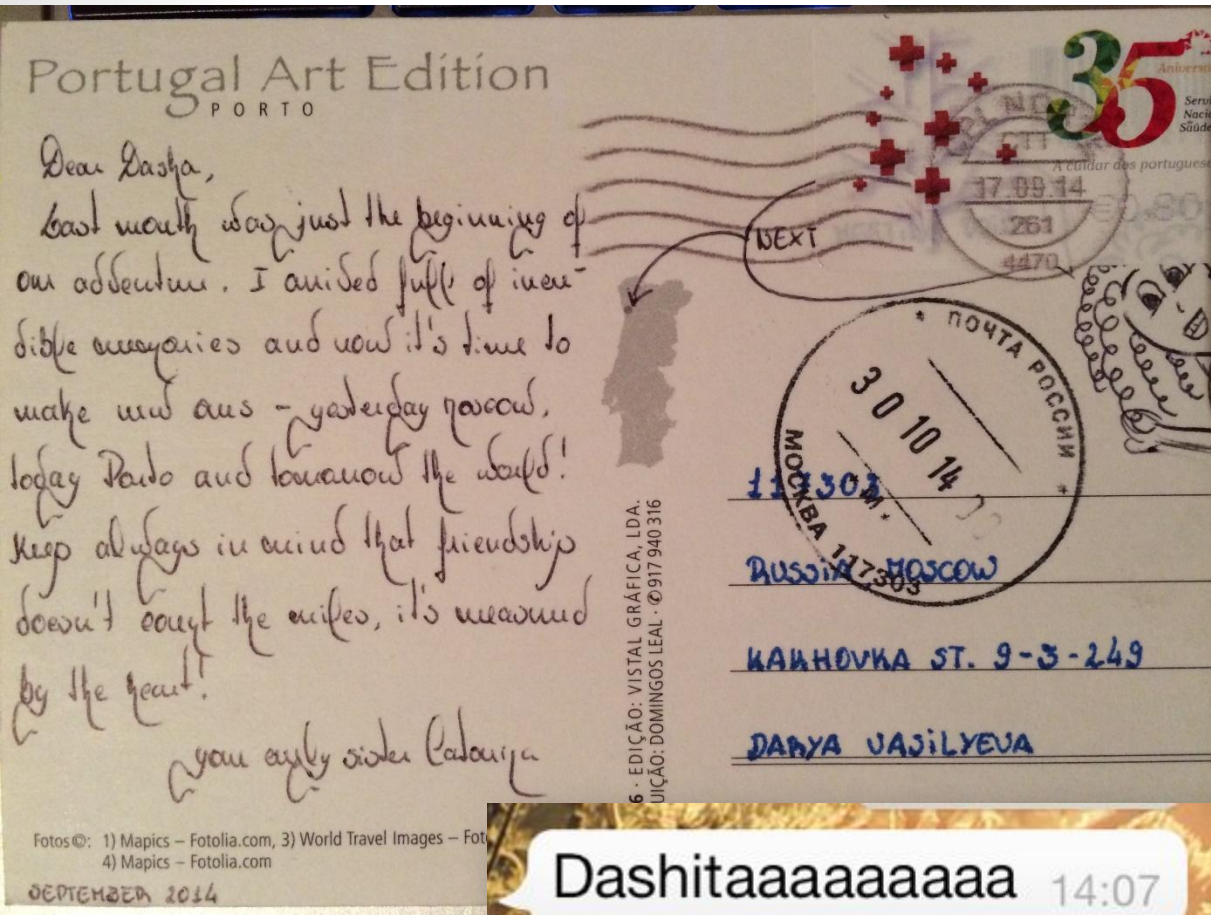 Portugal Art Edition
PORTO
Dear Dasha,
Last month was just the beginning of
our adventure. I arrived full of incre-
dible memories and now it's time to
make new ones - yesterday Moscow,
today Porto and tomorrow the world!
Keep always in mind that friendship
doesn't count the miles, it's measured
by the heart!
your curly sister Catarina
Fotos©: 1) Mapics – Fotolia.com, 3) World Travel Images – Fot
4) Mapics – Fotolia.com
SEPTEMBER 2014
6 · EDIÇÃO: VISTAL GRÁFICA, LDA.
UIÇÃO: DOMINGOS LEAL · ✆917 940 316
35
Aniversá
Servi
Nacio
Saúde
A cuidar dos portugueses
CTT
17.09.14
261
4470
NEXT
ПОЧТА РОССИИ
30 10 14
МОСКВА 117303
117303
RUSSIA MOSCOW
KAKHOVKA ST. 9-3-249
DARYA VASILYEVA
Dashitaaaaaaaaaa 14:07